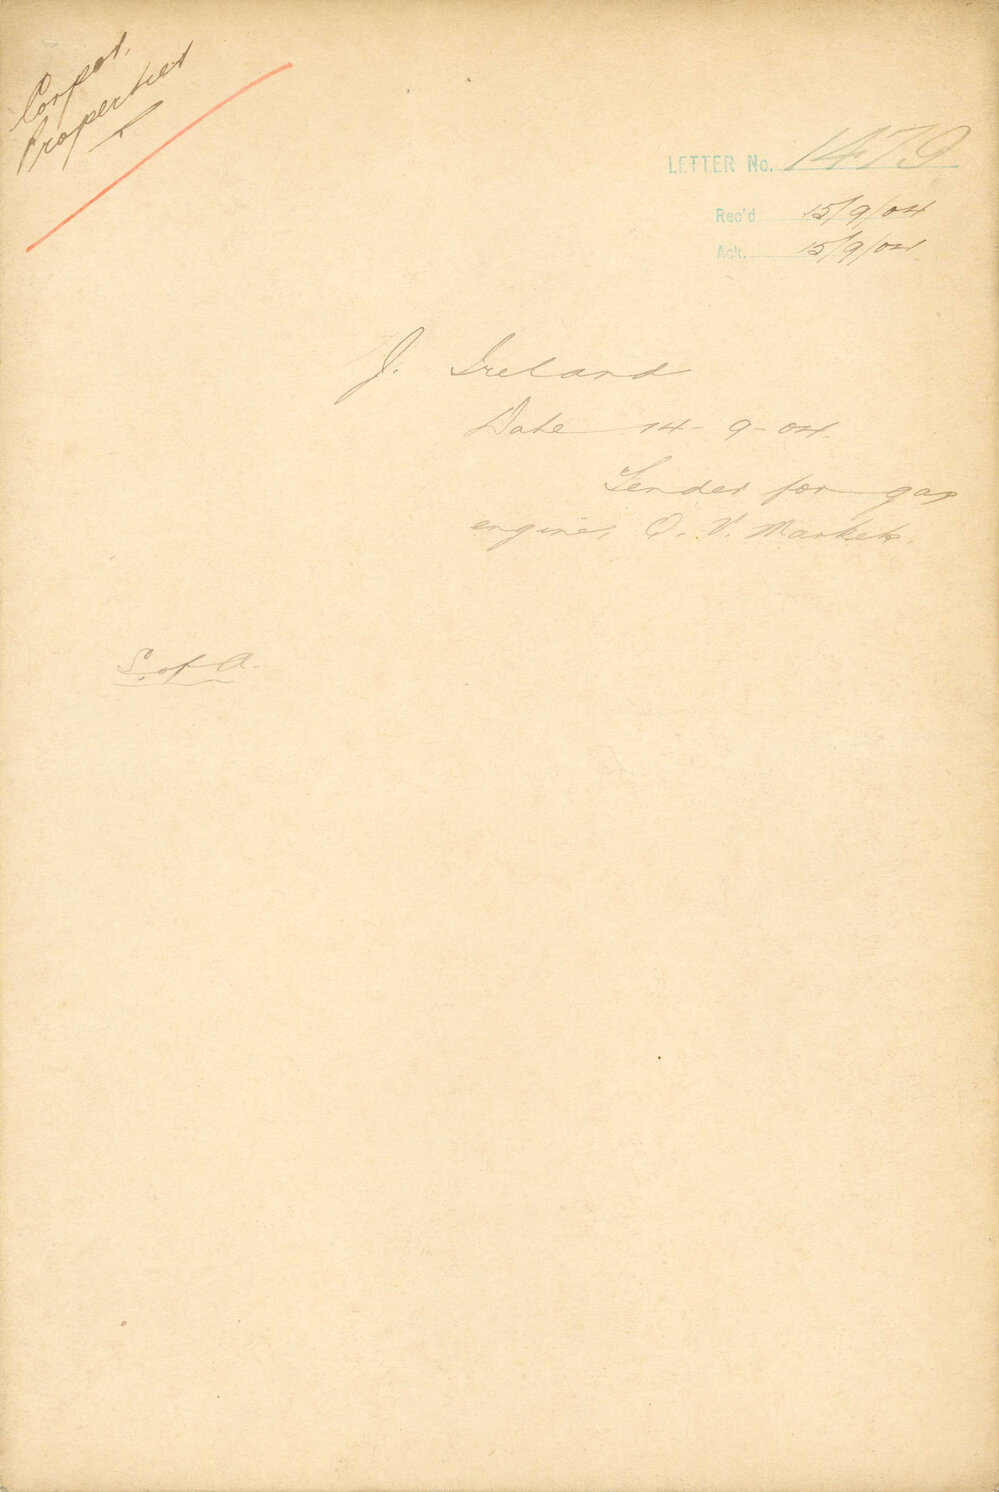 Corpor.
Properties
LETTER No. 1479
Rec'd 15/9/04
Ack. 15/9/04
J. Ireland
Date 14-9-04.
Tender for gas
engine, Q. V. Markets.
S. of A.